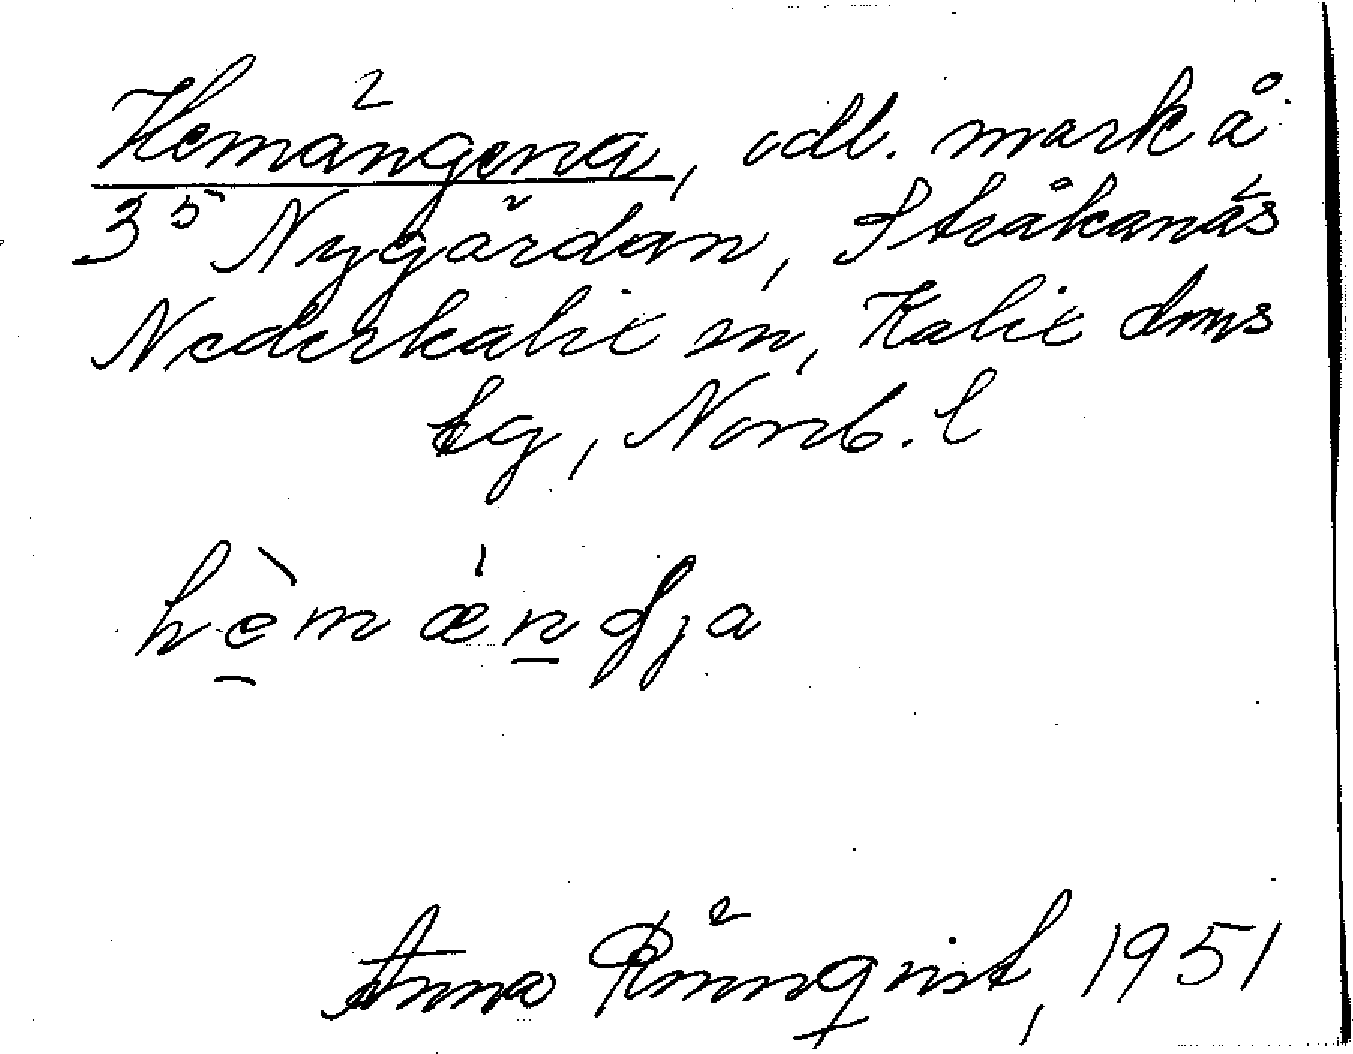 Hemängena, odl. mark å
3⁵ Nygården, Stråkanäs
Nederkalix sn, Kalix dms
tg, Norrb. l
hèmæ̀ndja
Anna Rönnqvist, 1951